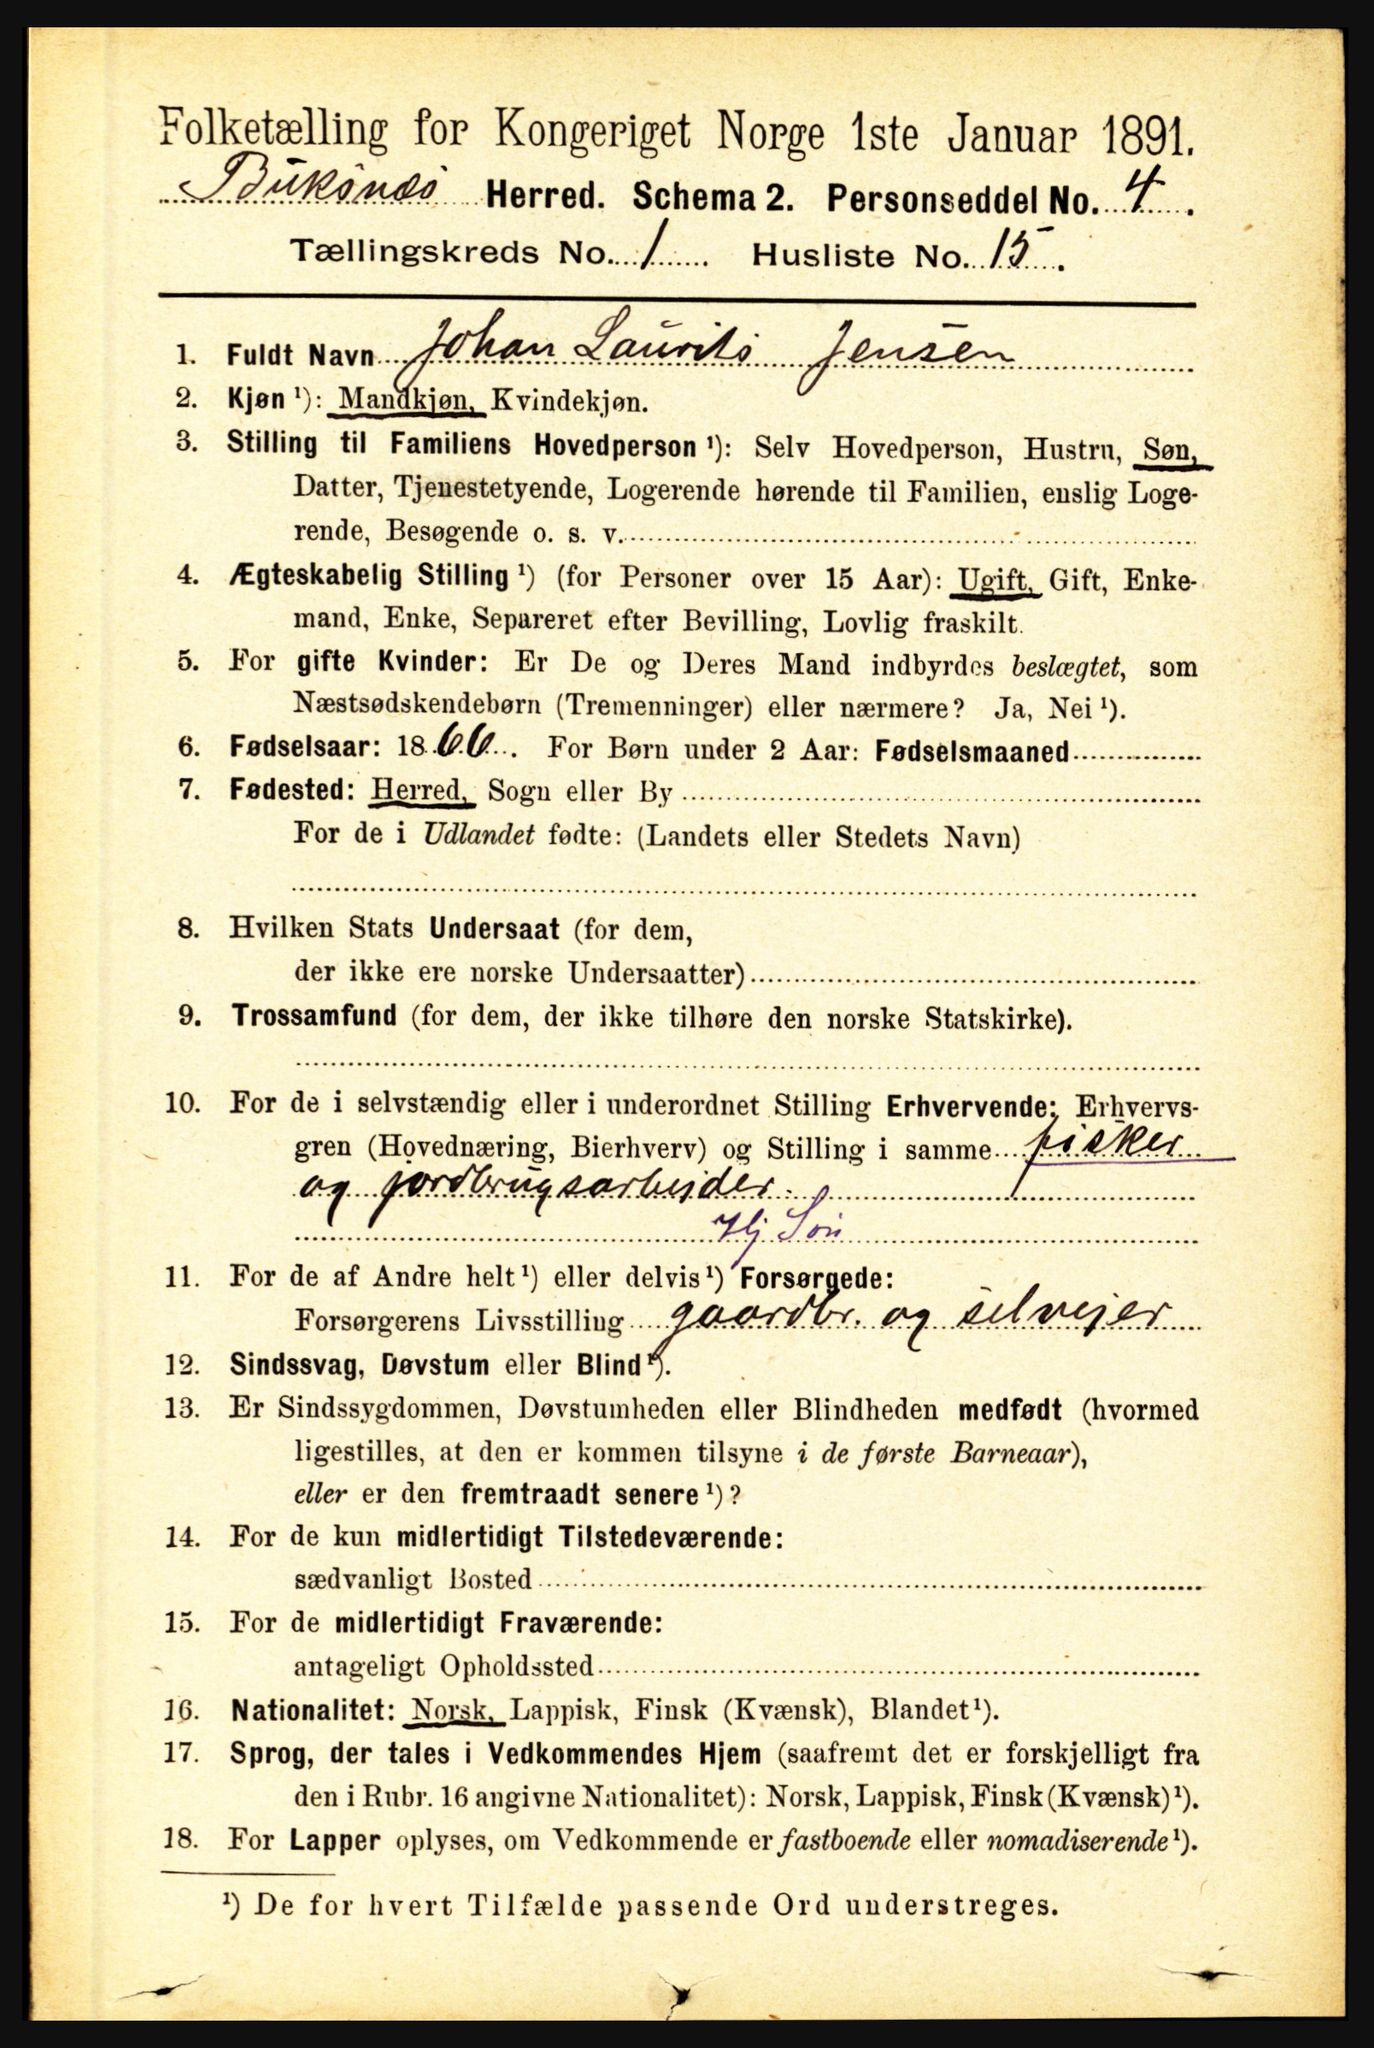 Folketælling for Kongeriget Norge 1ste Januar 1891.
Buksnæs Herred. Schema 2. Personseddel No. 4.
Tællingskreds No. 1. Husliste No. 15.
1. Fuldt Navn Johan Laurits Jensen
2. Kjøn ¹): Mandkjøn, Kvindekjøn.
3. Stilling til Familiens Hovedperson ¹): Selv Hovedperson, Hustru, Søn,
Datter, Tjenestetyende, Logerende hørende til Familien, enslig Loge-
rende, Besøgende o. s. v.
4. Ægteskabelig Stilling ¹) (for Personer over 15 Aar): Ugift, Gift, Enke-
mand, Enke, Separeret efter Bevilling, Lovlig fraskilt.
5. For gifte Kvinder: Er De og Deres Mand indbyrdes beslægtet, som
Næstsødskendebørn (Tremenninger) eller nærmere? Ja, Nei ¹).
6. Fødselsaar: 1866. For Børn under 2 Aar: Fødselsmaaned
7. Fødested: Herred, Sogn eller By
For de i Udlandet fødte: (Landets eller Stedets Navn)
8. Hvilken Stats Undersaat (for dem,
der ikke ere norske Undersaatter)
9. Trossamfund (for dem, der ikke tilhøre den norske Statskirke).
10. For de i selvstændig eller i underordnet Stilling Erhvervende: Erhvervs-
gren (Hovednæring, Bierhverv) og Stilling i samme fisker
og jordbrugsarbejder.
Hj Søn
11. For de af Andre helt ¹) eller delvis ¹) Forsørgede:
Forsørgerens Livsstilling gaardbr. og selvejer
12. Sindssvag, Døvstum eller Blind ¹).
13. Er Sindssygdommen, Døvstumheden eller Blindheden medfødt (hvormed
ligestilles, at den er kommen tilsyne i de første Barneaar),
eller er den fremtraadt senere ¹)?
14. For de kun midlertidigt Tilstedeværende:
sædvanligt Bosted
15. For de midlertidigt Fraværende:
antageligt Opholdssted
16. Nationalitet: Norsk, Lappisk, Finsk (Kvænsk), Blandet ¹).
17. Sprog, der tales i Vedkommendes Hjem (saafremt det er forskjelligt fra
den i Rubr. 16 angivne Nationalitet): Norsk, Lappisk, Finsk (Kvænsk) ¹).
18. For Lapper oplyses, om Vedkommende er fastboende eller nomadiserende ¹).
¹) De for hvert Tilfælde passende Ord understreges.